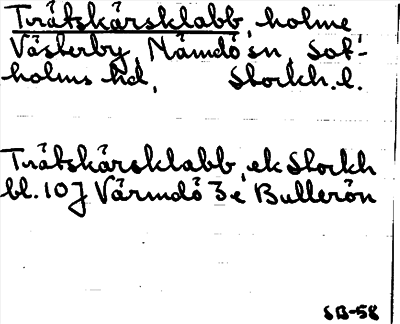 Tråtskärsklabb, holme
Västerby, Nämdö sn, Sot-
holms hd, Stockh. l.
Tråtskärsklabb, ek Stockh
bl. 10J Värmdö 3e Bullerön
SB-58